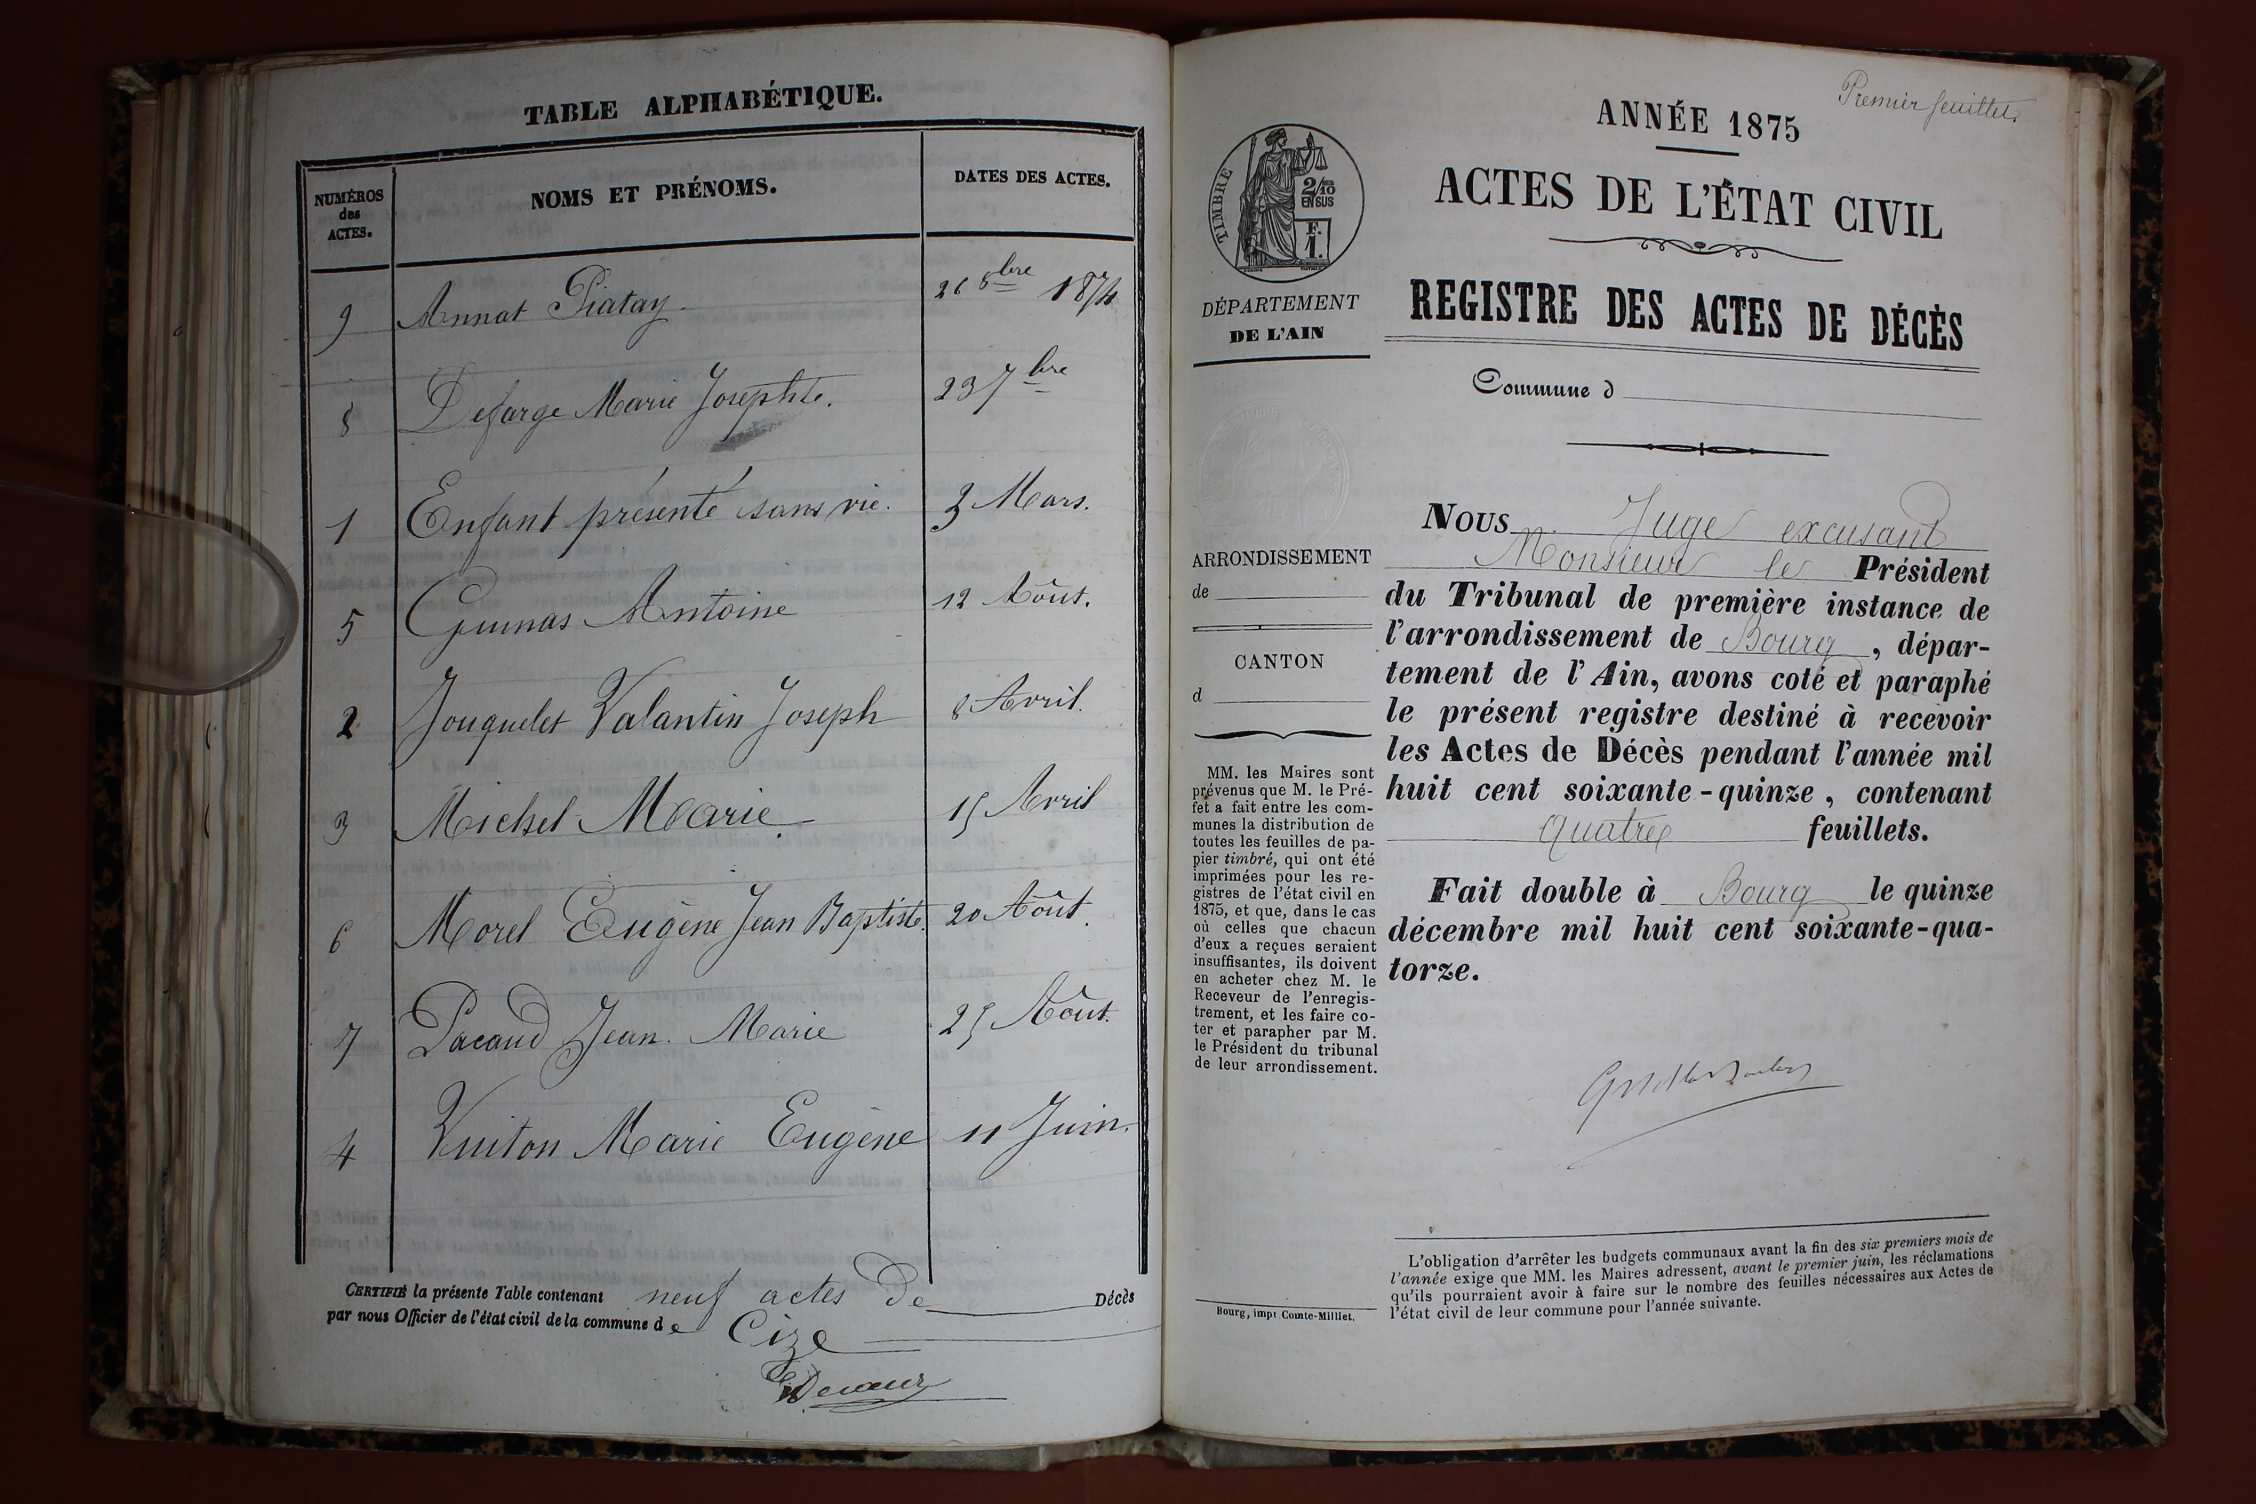 TABLE ALPHABÉTIQUE.
NUMÉROS
des
ACTES.
NOMS ET PRÉNOMS.
DATES DES ACTES.
9 Annat Piatay 26 8bre 1874
8 Defarge Marie Josephte. 23 7bre
1 Enfant présenté sans vie. 3 Mars.
5 Guinas Antoine 12 Aôut.
2 Jouquelet Valantin Joseph 8 Avril.
3 Michel Marie 15 Avril
6 Morel Eugène Jean Baptiste. 20 Aôut.
7 Pacaud Jean Marie 25 Aôut.
4 Vuiton Marie Eugène 11 Juin.
CERTIFIÉ la présente Table contenant neuf actes de Décès
par nous Officier de l'état civil de la commune de Cize
Premier feuillet.
ANNÉE 1875
ACTES DE L'ÉTAT CIVIL
REGISTRE DES ACTES DE DÉCÈS
Commune d
TIMBRE
2/10
EN SUS
F.
1.
DÉPARTEMENT
DE L'AIN
ARRONDISSEMENT
de
CANTON
d
MM. les Maires sont
prévenus que M. le Pré-
fet a fait entre les com-
munes la distribution de
toutes les feuilles de pa-
pier timbré, qui ont été
imprimées pour les re-
gistres de l'état civil en
1875, et que, dans le cas
où celles que chacun
d'eux a reçues seraient
insuffisantes, ils doivent
en acheter chez M. le
Receveur de l'enregis-
trement, et les faire co-
ter et parapher par M.
le Président du tribunal
de leur arrondissement.
Bourg, impr Comte-Milliet.
NOUS Juge excusant
Monsieur le Président
du Tribunal de première instance de
l'arrondissement de Bourg, dépar-
tement de l'Ain, avons coté et paraphé
le présent registre destiné à recevoir
les Actes de Décès pendant l'année mil
huit cent soixante-quinze, contenant
quatre feuillets.
Fait double à Bourg le quinze
décembre mil huit cent soixante-qua-
torze.
L'obligation d'arrêter les budgets communaux avant la fin des six premiers mois de
l'année exige que MM. les Maires adressent, avant le premier juin, les réclamations
qu'ils pourraient avoir à faire sur le nombre des feuilles nécessaires aux Actes de
l'état civil de leur commune pour l'année suivante.